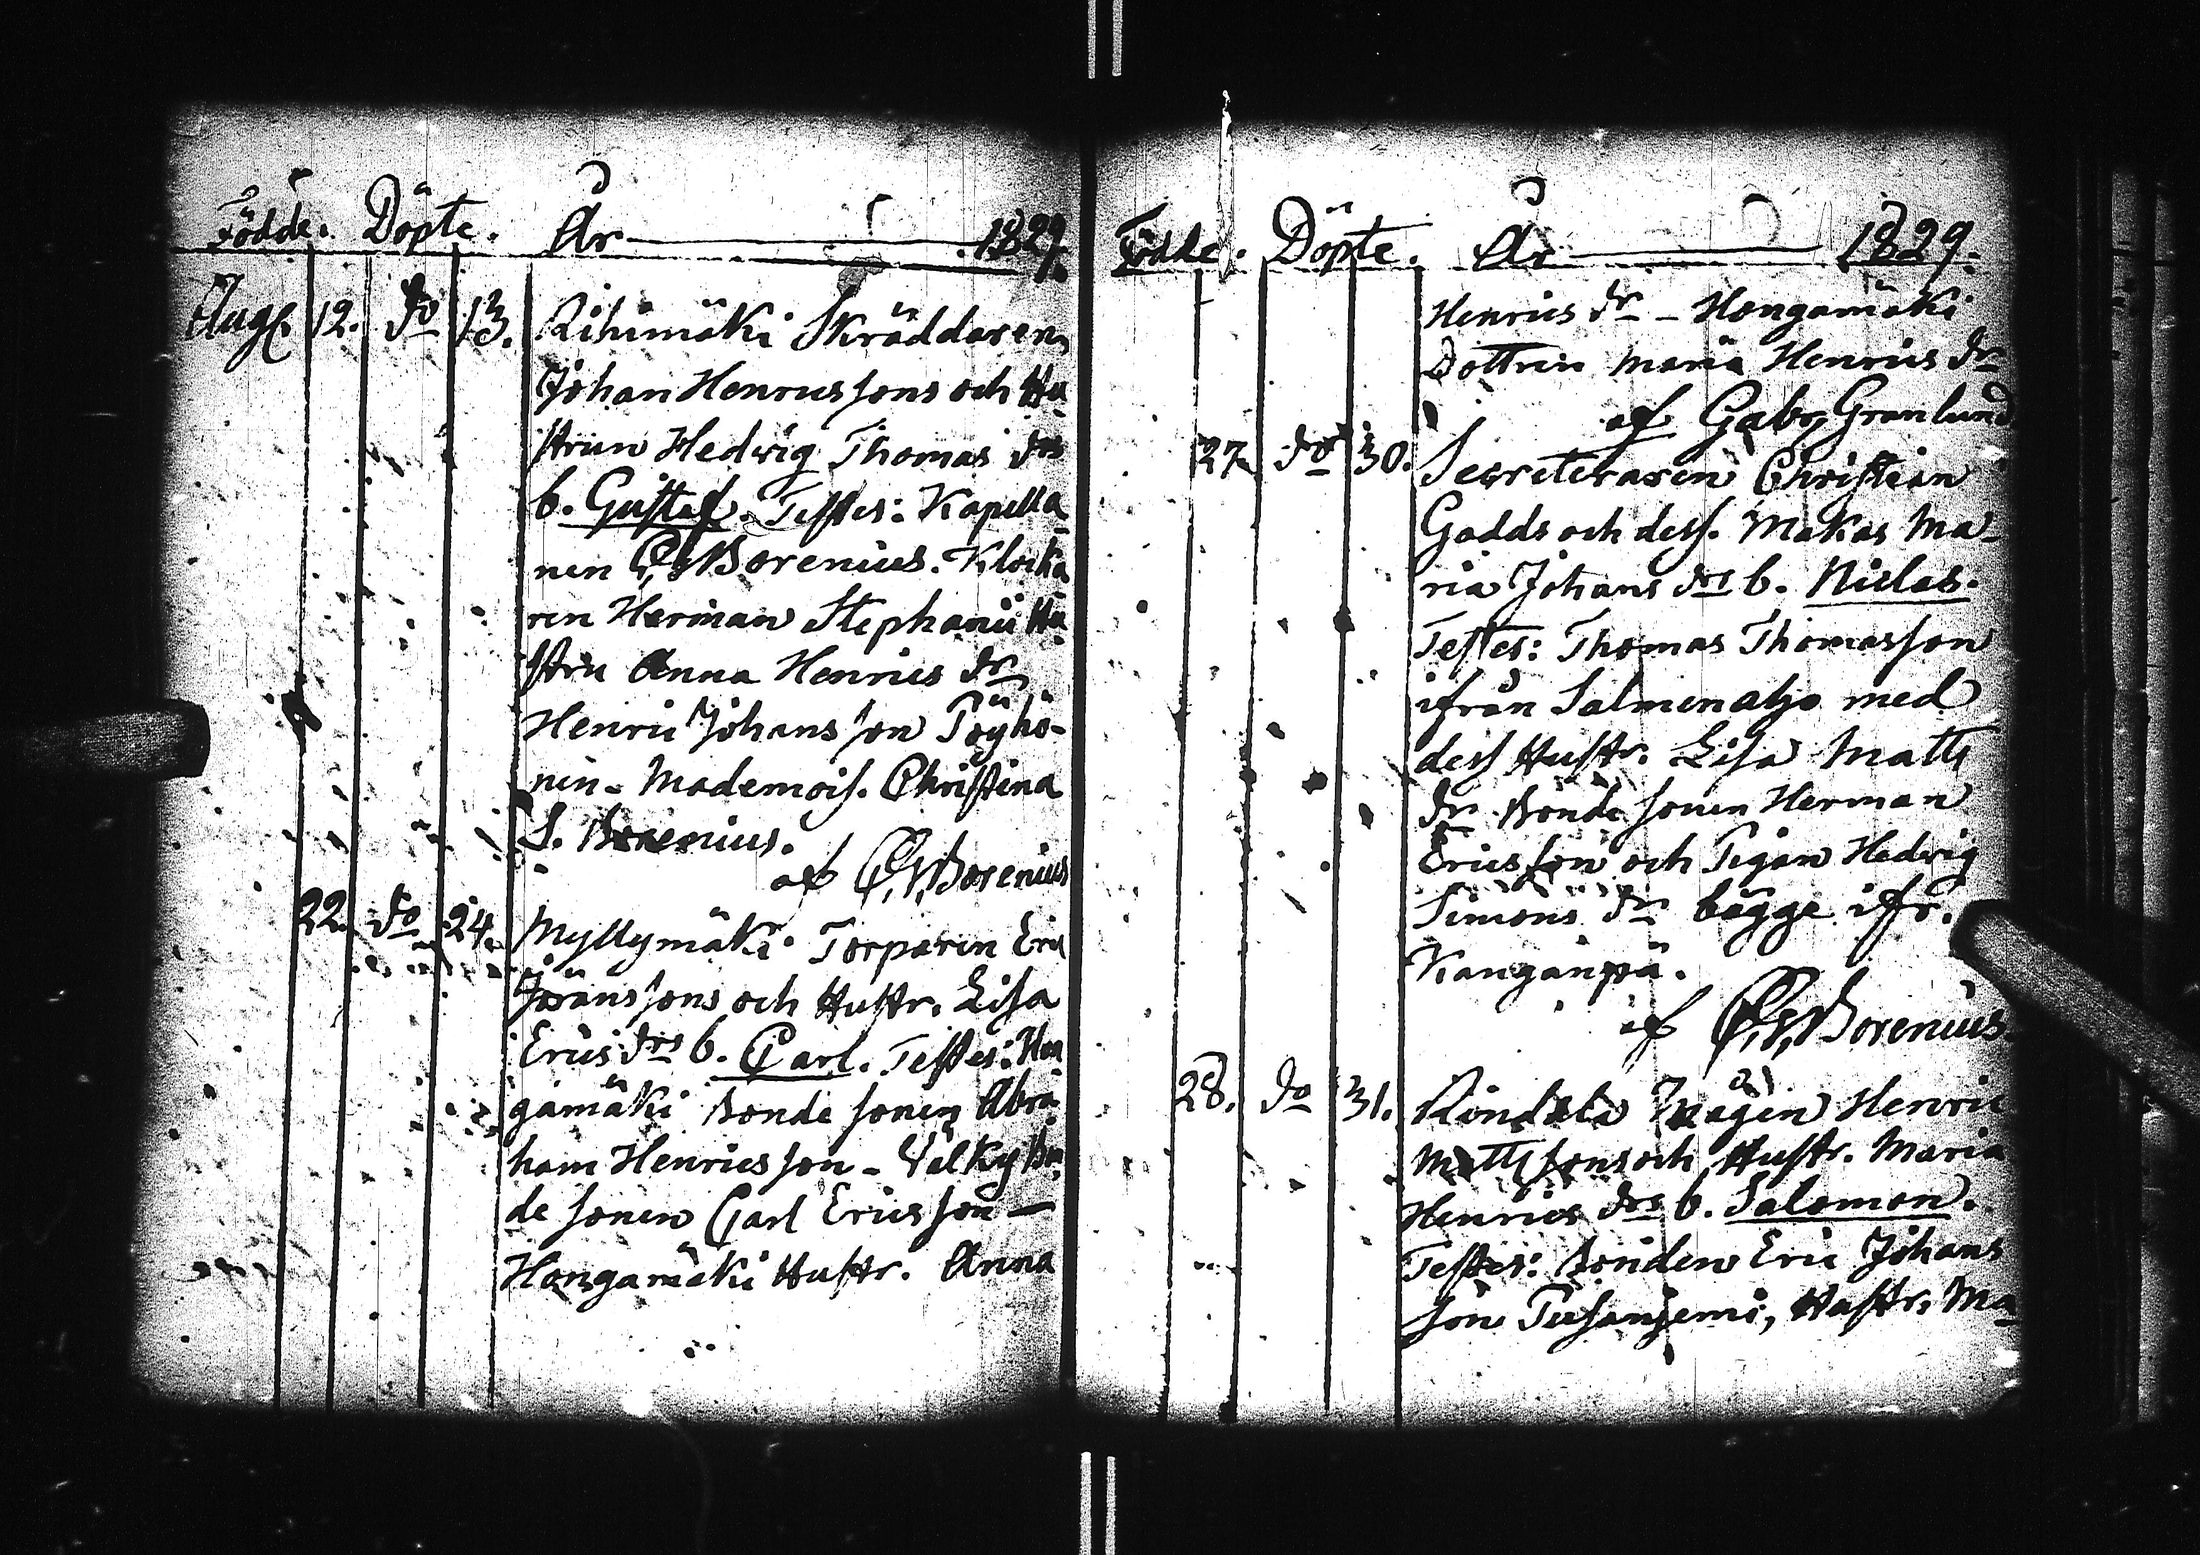 Födde. Döpte. År 1829.
Aug. 12. do 13. Rihimäki Skräddaren
Johan Henricssons och Hu
strun Hedvig Thomas drs
b. Gustaf. Testes: Kapella
nen C. G. Borenius. Klocka
ren Herman Stephanii Hu
stru Anna Henrics dr
Henric Johansson Pöyhö-
nen - Mademois. Christina
S. Borenius.
af C. G. Borenius
22. do 24. Myllymäki Torparen Eric
Jöranssons och Hustr. Lisa
Erics drs b. Carl. Testes: Hon
gamäki Bonde sonen Abra
ham Henricsson - Välky Bon
de sonen Carl Ericsson -
Hongamäki Hustr. Anna
Födde. Döpte. År 1829.
Henrics dr - Hongamäki
Dottren Maria Henrics dr
af Gabr. Granlund
27 do 30. Secreteraren Christian
Gadds och dess. Makas Ma-
ria Johans drs b. Niclas.
Testes: Thomas Thomasson
ifrån Salmenaho med
dess Hustr. Lisa Matts
dr Bonde sonen Herman
Ericsson och Pigan Hedvig
Simons dr bägge ifr.
Kanganpä.
af C. G. Borenius.
28. do 31. Mågen Henric
Mattssons och Hustr. Maria
Henrics drs b. Salomon.
Testes: Bonden Eric Johans
son Hustr. Ma-